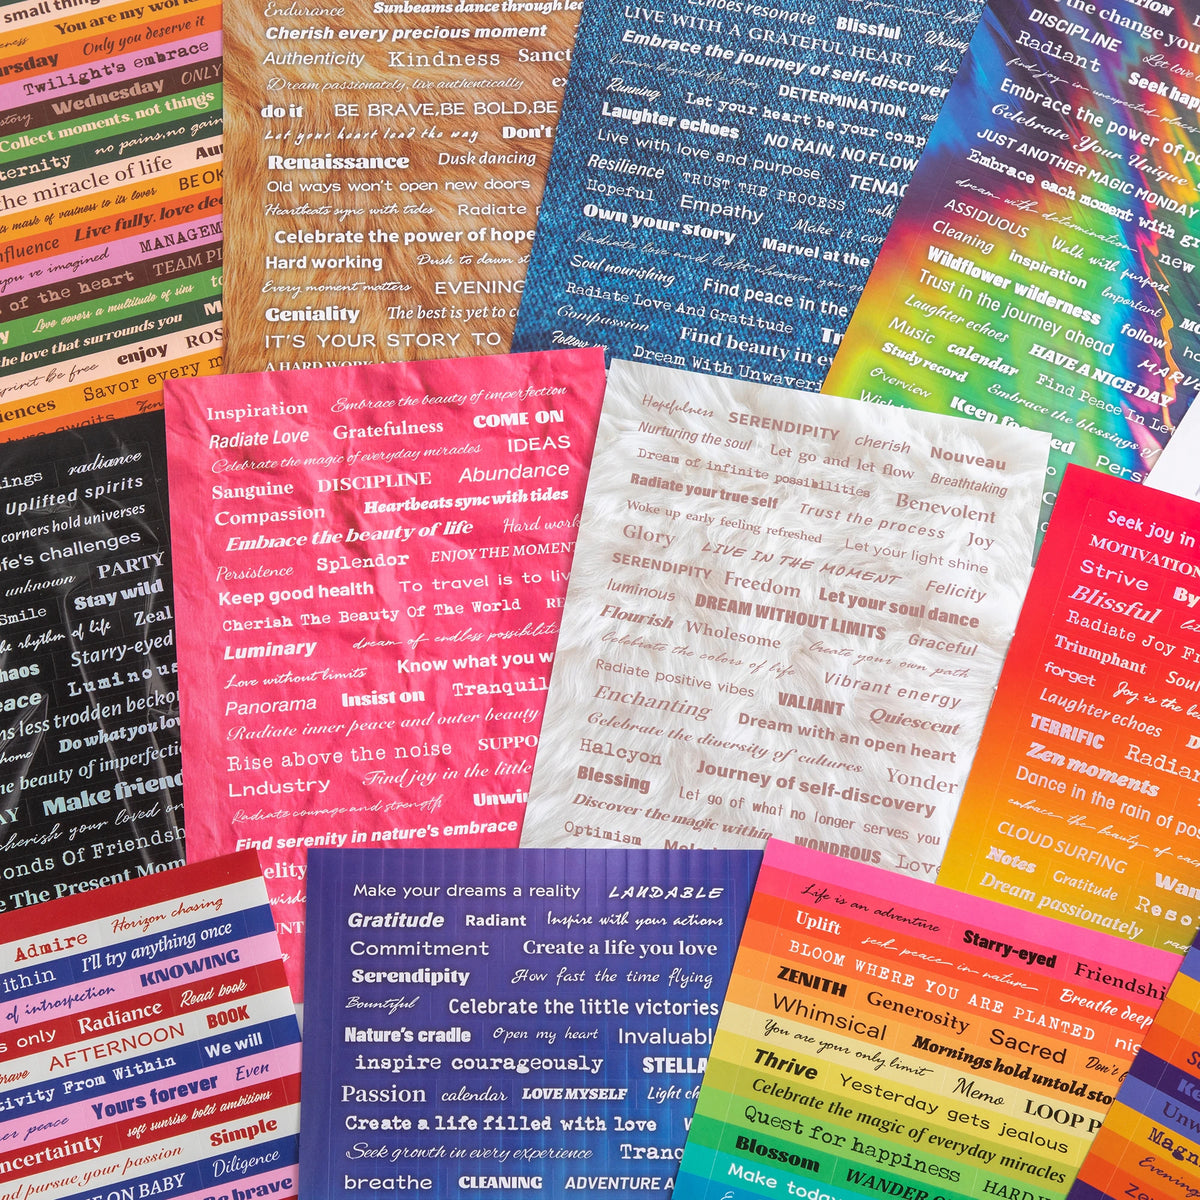 small thing
You are my world
Only you deserve it
Twilight's embrace
Wednesday ONLY
Collect moments, not things
no pains, no gain
the miracle of life
mask of vastness to its lover BE OK
Live fully, love dee
you've imagined MANAGEM
of the heart TEAM PL
Love covers a multitude of sins to
the love that surrounds you
spirit be free enjoy ROS
Savor every m
Endurance Sunbeams dance through lea
Cherish every precious moment
Authenticity Kindness Sanct
Dream passionately, live authentically
do it BE BRAVE,BE BOLD,BE
Let your heart lead the way Don't
Renaissance Dusk dancing
Old ways won't open new doors
Heartbeats sync with tides Radiate
Celebrate the power of hope
Hard working Dusk to dawn st
Every moment matters EVENING
Geniality The best is yet to c
IT'S YOUR STORY TO
A HARD WORK
Echoes resonate Blissful Writing
LIVE WITH A GRATEFUL HEART
Embrace the journey of self-discover
DETERMINATION
Running Let your heart be your comp
Laughter echoes NO RAIN, NO FLOW
Live with love and purpose
Resilience TRUST THE PROCESS TENAC
Hopeful Empathy walk
Own your story Make it com
Marvel at the
Soul nourishing Find peace in the
Radiate Love And Gratitude
Compassion Find beauty in ev
Follow Dream With Unwaveri
the change you
DISCIPLINE
Radiant Seek hap
find joy in unexpected places
Embrace the power of po
Celebrate Your Unique
JUST ANOTHER MAGIC MONDAY
Embrace each moment with gr
dream with determination
ASSIDUOUS Walk with purpose new
Cleaning inspiration Important
Wildflower wilderness follow
Trust in the journey ahead
Laughter echoes HAVE A NICE DAY
Music calendar Find Peace In Let
Study record Embrace the blessings of
Overview Keep focused
Persi
ings radiance
Uplifted spirits
corners hold universes
ife's challenges
unknown PARTY
Smile Stay wild
the rhythm of life Zeal
haos Starry-eyed
eace Luminous
ns less trodden beckon
home Do what you lov
he beauty of imperfectio
AY Make friend
cherish your loved on
onds Of Friendsh
e The Present Mom
Inspiration Embrace the beauty of imperfection
Radiate Love Gratefulness COME ON
Celebrate the magic of everyday miracles IDEAS
Sanguine DISCIPLINE Abundance
Compassion Heartbeats sync with tides
Embrace the beauty of life Hard work
Persistence Splendor ENJOY THE MOMENT
Keep good health To travel is to liv
Cherish The Beauty Of The World RE
Luminary dream of endless possibilitie
Love without limits Know what you w
Panorama Insist on Tranquil
Radiate inner peace and outer beauty
Rise above the noise SUPPO
Lndustry Find joy in the little
Radiate courage and strength Unwi
Find serenity in nature's embrace
Hopefulness SERENDIPITY cherish Nouveau
Nurturing the soul Let go and let flow Breathtaking
Dream of infinite possibilities Benevolent
Radiate your true self Trust the process Joy
Woke up early feeling refreshed Let your light shine
Glory LIVE IN THE MOMENT Felicity
SERENDIPITY Freedom Let your soul dance
luminous DREAM WITHOUT LIMITS Graceful
Flourish Wholesome Create your own path
Celebrate the colors of life Vibrant energy
Radiate positive vibes VALIANT Quiescent
Enchanting Dream with an open heart
Celebrate the diversity of cultures Yonder
Halcyon Journey of self-discovery
Blessing Let go of what no longer serves you
Discover the magic within WONDROUS Love
Optimism
Seek joy in
MOTIVATION
Strive By
Blissful
Radiate Joy Fr
Triumphant Sou
forget Joy is the b
Laughter echoes D
TERRIFIC Radian
Zen moments
Dance in the rain of pos
embrace the beauty of eac
CLOUD SURFING
Notes Gratitude Wan
Dream passionately Reso
Admire Horizon chasing
ithin I'll try anything once
of introspection KNOWING
s only Radiance Read book
brave AFTERNOON BOOK
tivity From Within We will
er peace Yours forever Even
ncertainty soft sunrise bold ambitions
and pursue your passion Simple
E ON BABY Diligence
Be brave
Make your dreams a reality LAUDABLE
Gratitude Radiant Inspire with your actions
Commitment Create a life you love
Serendipity How fast the time flying
Bountiful Celebrate the little victories
Nature's cradle Open my heart Invaluabl
inspire courageously STELLA
Passion calendar LOVE MYSELF Light ch
Create a life filled with love
Seek growth in every experience Tranq
breathe CLEANING ADVENTURE A
Life is an adventure
Uplift Starry-eyed Friendshi
seek peace in nature Breathe deep
BLOOM WHERE YOU ARE PLANTED
ZENITH Generosity Sacred nig
Whimsical Mornings hold untold sto
You are your only limit Memo LOOP P
Thrive Yesterday gets jealous
Celebrate the magic of everyday miracles
Quest for happiness HARD
Blossom WANDER
Make today